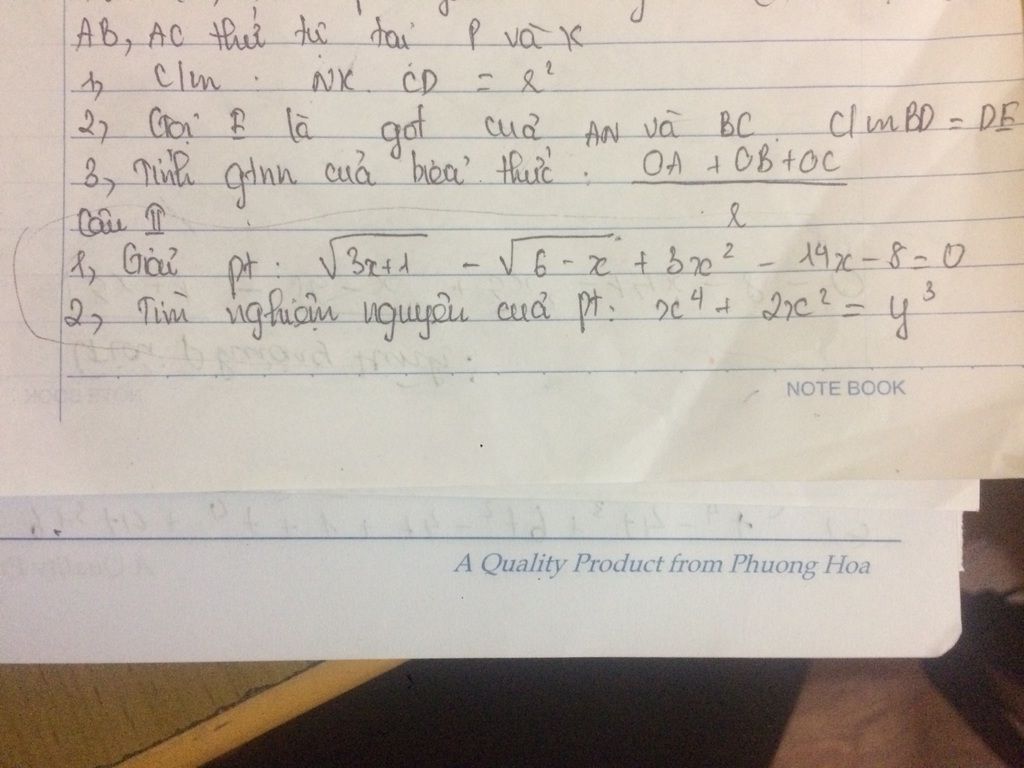 AB, AC thứ tự tại P và K
1, C/m : NK. CD = r²
2, Gọi E là gđ của AN và BC. C/m BD = DE
3, Tính gtnn của biểu thức : OA + OB + OC
r
Câu II
1, Giải pt : √3x+1 - √6 - x + 3x² - 14x - 8 = 0
2, Tìm nghiệm nguyên của pt: x⁴ + 2x² = y³
NOTE BOOK
A Quality Product from Phuong Hoa